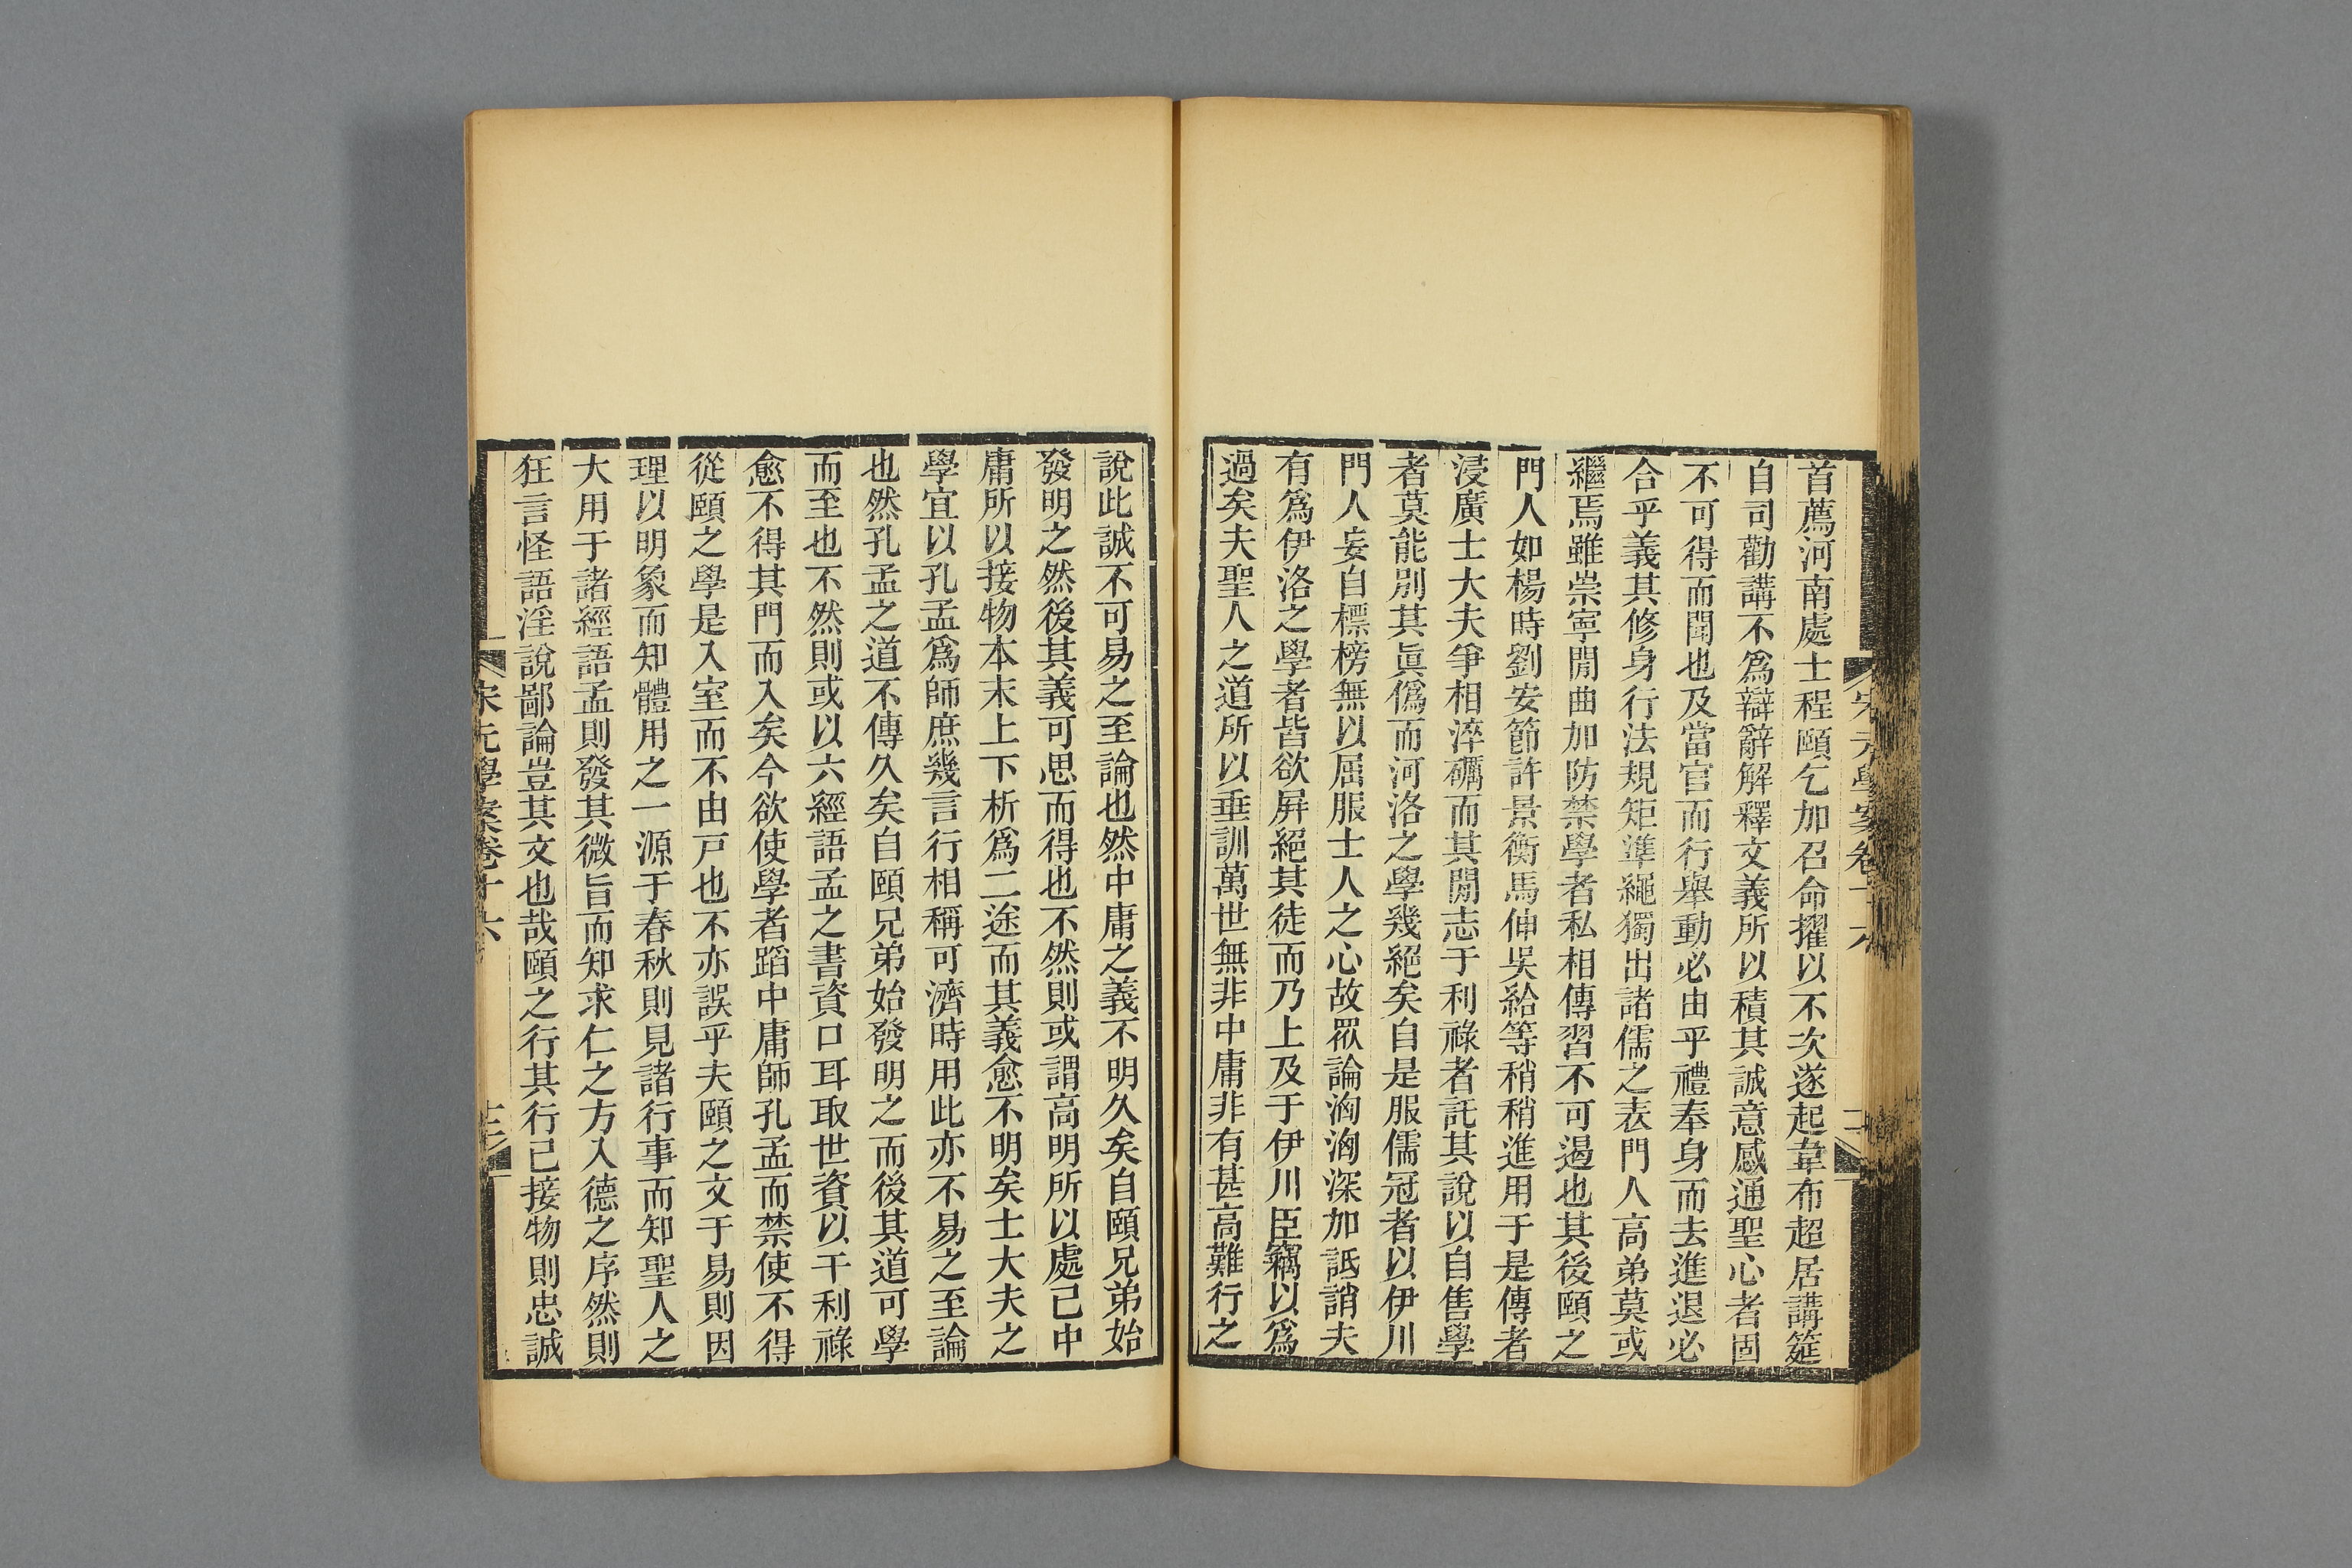 首薦河南處士程頤乞加召命擢以不次遂起韋布超居講筵
自司勸講不爲辯辭解釋文義所以積其誠意感通聖心者固
不可得而聞也及當官而行舉動必由乎禮奉身而去進退必
合乎義其修身行法規矩準繩獨出諸儒之表門人高弟莫或
繼焉雖崇寧閒曲加防禁學者私相傳習不可遏也其後頤之
門人如楊時劉安節許景衡馬伸吳給等稍稍進用于是傳者
浸廣士大夫爭相淬礪而其閒志于利祿者託其說以自售學
者莫能別其眞僞而河洛之學幾絕矣自是服儒冠者以伊川
門人妄自標榜無以屈服士人之心故眾論洶洶深加詆誚夫
有爲伊洛之學者皆欲屏絕其徒而乃上及于伊川臣竊以爲
過矣夫聖人之道所以垂訓萬世無非中庸非有甚高難行之
說此誠不可易之至論也然中庸之義不明久矣自頤兄弟始
發明之然後其義可思而得也不然則或謂高明所以處己中
庸所以接物本末上下析爲二途而其義愈不明矣士大夫之
學宜以孔孟爲師庶幾言行相稱可濟時用此亦不易之至論
也然孔孟之道不傳久矣自頤兄弟始發明之而後其道可學
而至也不然則或以六經語孟之書資口耳取世資以干利祿
愈不得其門而入矣今欲使學者蹈中庸師孔孟而禁使不得
從頤之學是入室而不由戸也不亦誤乎夫頤之文于易則因
理以明象而知體用之一源于春秋則見諸行事而知聖人之
大用于諸經語孟則發其微旨而知求仁之方入德之序然則
狂言怪語淫說鄙論豈其文也哉頤之行其行己接物則忠誠
宋元學案卷十六